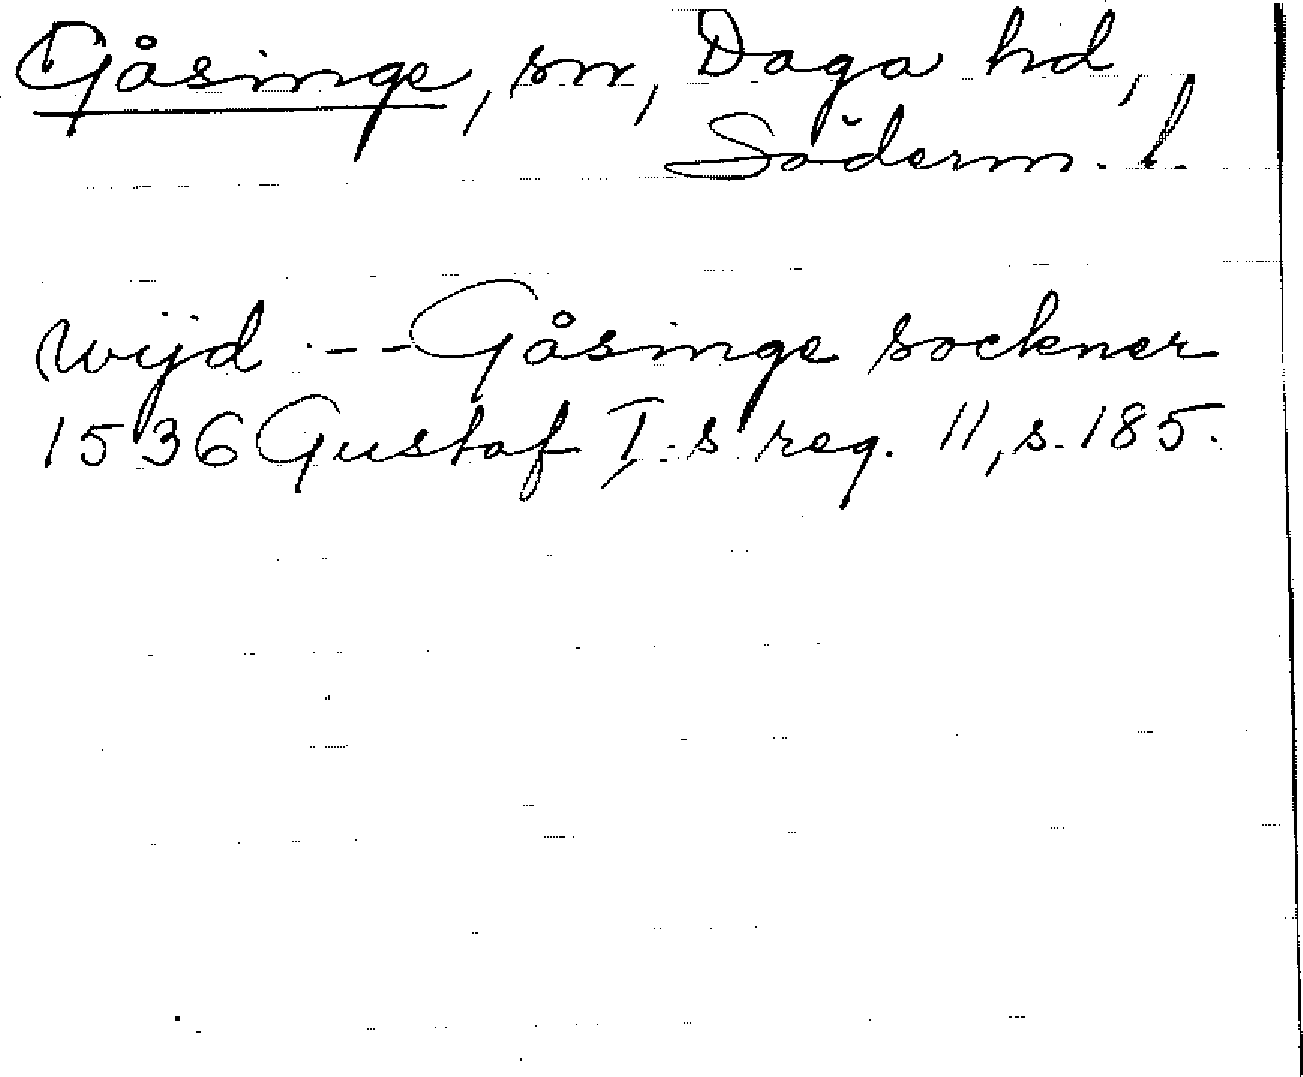 Gåsinge, sn, Daga hd,
Söderm. l.
(wijd - - - Gåsinge sockner
1536 Gustaf I:s reg. 11, s. 185.